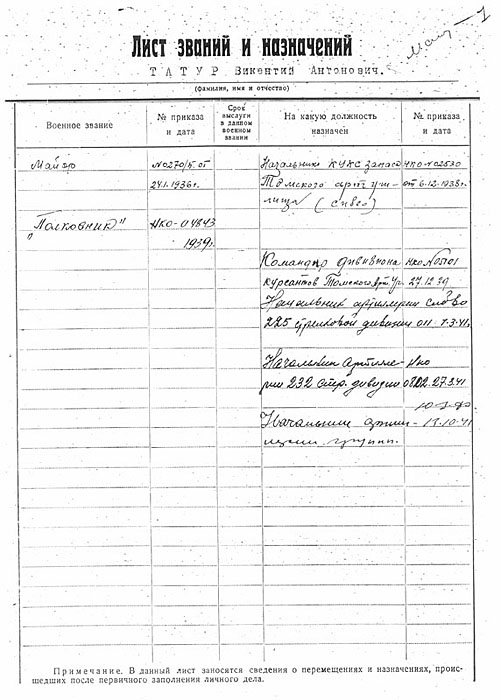 Лист званий и назначений
ТАТУР Викентий Антонович.
(фамилия, имя и отчество)
Военное звание
№ приказа и дата
Срок выслуги в данном военном звании
На какую должность назначен
№ приказа и дата
Майор
№0270/п. от
24.1.1936г.
Начальник КУКС запаса
НКО-№02530
Томского арт. учи-
от 6.12.1938г.
лища
"Полковник"
НКО-04843
1939г.
Командир дивизиона
НКО №05101
курсантов Томского Арт. Уч.
27.12.39
Начальник артиллерии
225 стрелковой дивизии
011 - 7.3.41.
Начальник артилле-
НКО
рии 232 стр. дивизии
27.3.41
Начальник
17.10.41
группы.
Примечание. В данный лист заносятся сведения о перемещениях и назначениях, проис-
шедших после первичного заполнения личного дела.